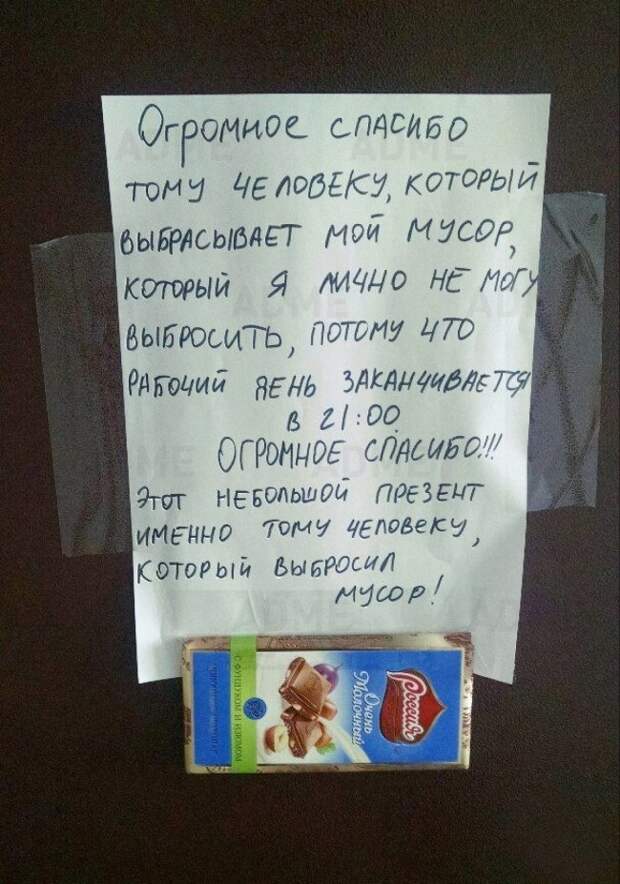 Огромное спасибо
тому человеку, который
выбрасывает мой мусор,
который я лично не могу
выбросить, потому что
рабочий день заканчивается
в 21:00.
Огромное спасибо!!!
Этот небольшой презент
именно тому человеку,
который выбросил
мусор!
Россия
Очень
Молочный
С ФУНДУКОМ И ИЗЮМОМ
ADME